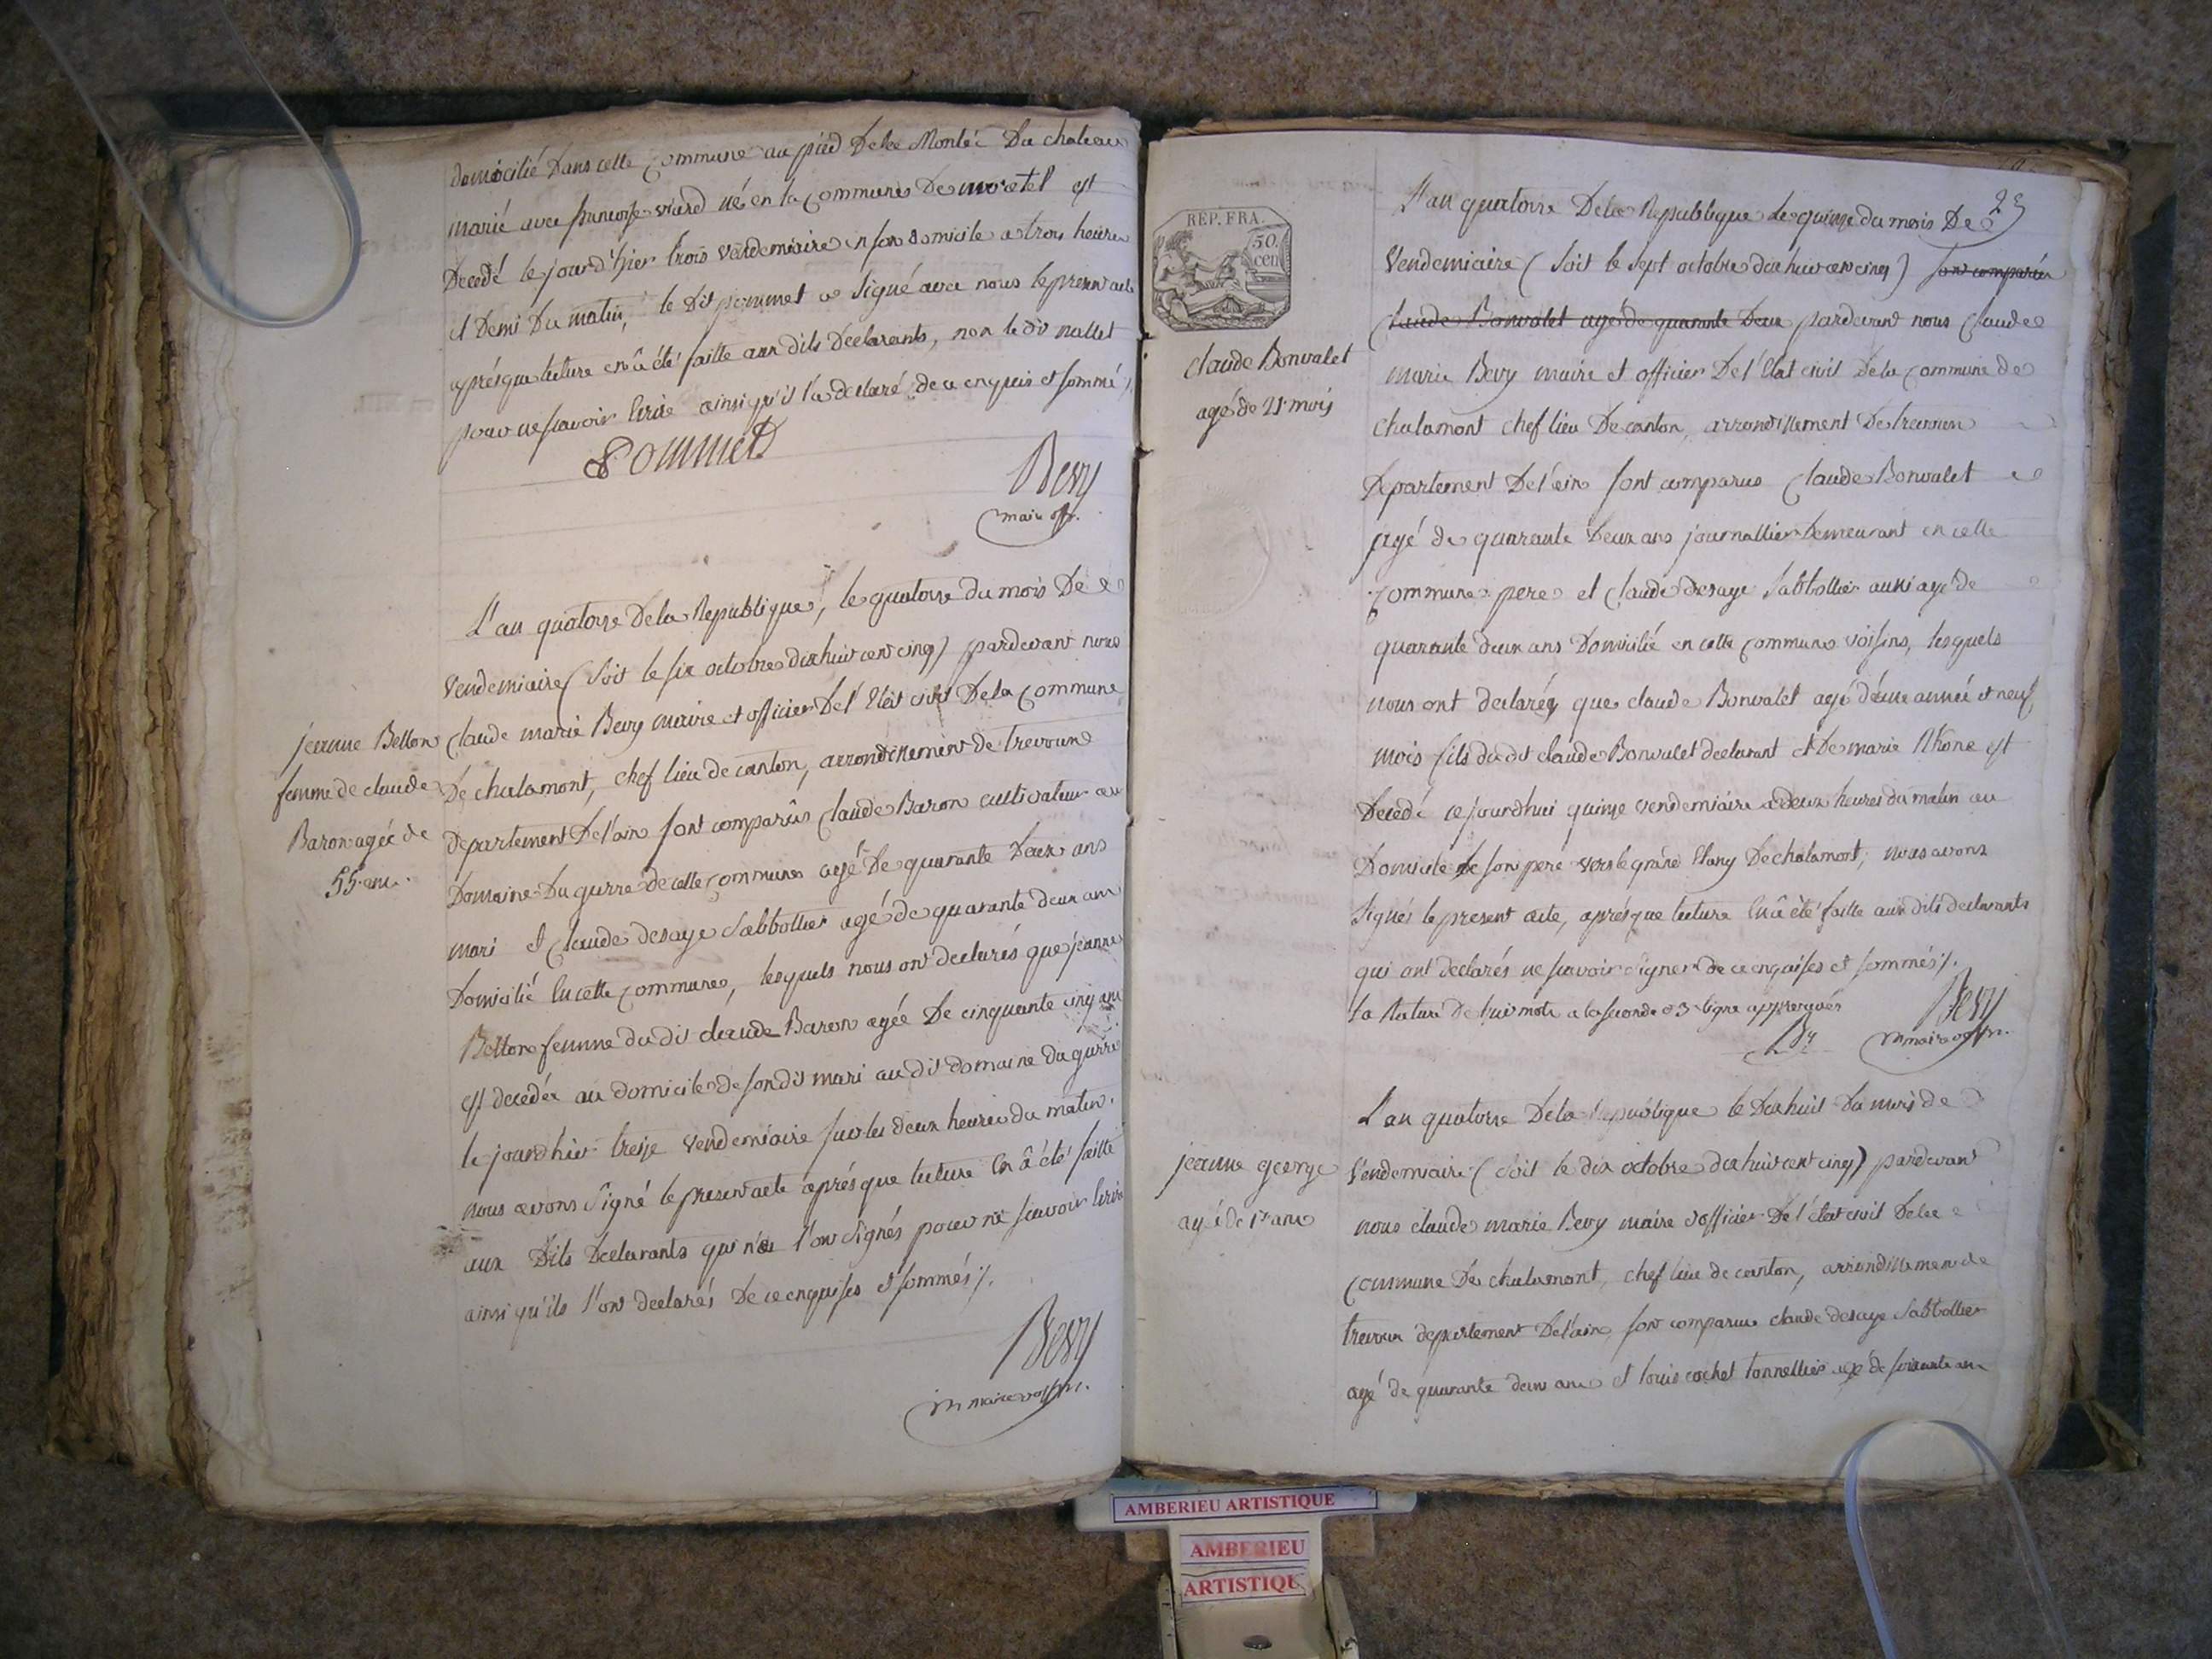 domicilié Dans cette Commune au pied Dela Montée Du chateau
marié avec francoise viard né en la Commune De moretel est
Decedé le jourd'hier trois vendemiaire en son domicile a trois heures
et Demi Du matin, le dit pommet a signé avec nous le present acte
aprésque lecture en â été faitte aux dits Declarants, non le dit nallet
pour ne scavoir Ecrire ainsi qu'il l'a declaré de ce enquis et sommé ./.
Pommet
Bevy
maire off.
L'an quatorze Dela Republique, le quatorze du mois De
Vendemiaire (soit le six octobre dixhuit cent cinq) pardevant nous
Claude marie Bevy maire et officier De l'Etat civil Dela Commune
De chalamont, chef lieu de canton, arrondissement de trevoux
departement De l'ain sont comparûs Claude Baron cultivateur au
Domaine Du gurre de cette Commune agé De quarante Deux ans
mari et Claude desaye Sabbottier agé de quarante deux ans
Domicilié En cette Commune, lesquels nous ont declarés que jeanne
Betton femme du dit claude Baron agée De cinquante cinq ans
est decedée au domicile de son dit mari au dit domaine du gurre
le jourd'hier treize vendemiaire sur les deux heures du matin,
nous avons Signé le present acte aprésque lecture En â été faitte
aux Dits Declarants qui n'ou l'ont signés pour ne scavoir Ecrire
ainsi qu'ils l'ont declarés De ce enquises et sommés ./.
Bevy
m maire off.
jeanne Betton
femme de claude
Baron agée de
55 ans.
23
L'an quatorze Dela Republique le quinze du mois De
Vendemiaire (soit le sept octobre dixhuit cent cinq) sont comparûs
Claude Bonvalet agé de quarante Deux pardevant nous Claude
marie Bevy maire et officier De l'Etat civil Dela Commune de
chalamont chef lieu De canton, arrondissement De trevoux
Departement De l'ain sont comparus Claude Bonvalet
agé de quarante Deux ans journallier demeurant en cette
Commune pere et Claude desaye Sabbottier aussi agé de
quarante deux ans Domicilié en cette Commune voisins, lesquels
nous ont declarés que claude Bonvalet agé d'une année et neuf
mois fils du dit claude Bonvalet declarant et De marie Rhone est
Decedé ce jourdhui quinze vendemiaire a deux heures du matin au
Domicile de son pere vers le grand Etang De chalamont, nous avons
signés le present acte, aprésque lecture En â été faitte aux dits declarants
qui ont declarés ne scavoir signer de ce enquises et sommés ./.
la Rature De huit mots a la seconde et 3e ligne approuvée
By
Bevy
m maire off.
REP. FRA.
50.
cen
Claude Bonvalet
agé de 21 mois
L'an quatorze Dela Republique le Dixhuit Du mois de
Vendemiaire (soit le dix octobre dixhuit cent cinq) pardevant
nous claude marie Bevy maire & officier De l'état civil Dela
Commune De chalamont, chef lieu de canton, arrondissement de
trevoux departement De l'ain, sont comparus claude desaye Sabbottier
agé de quarante deux ans et louis cochet tonnellier agé de soixante ans
jeanne george
agé de
AMBERIEU ARTISTIQUE
AMBERIEU
ARTISTIQU